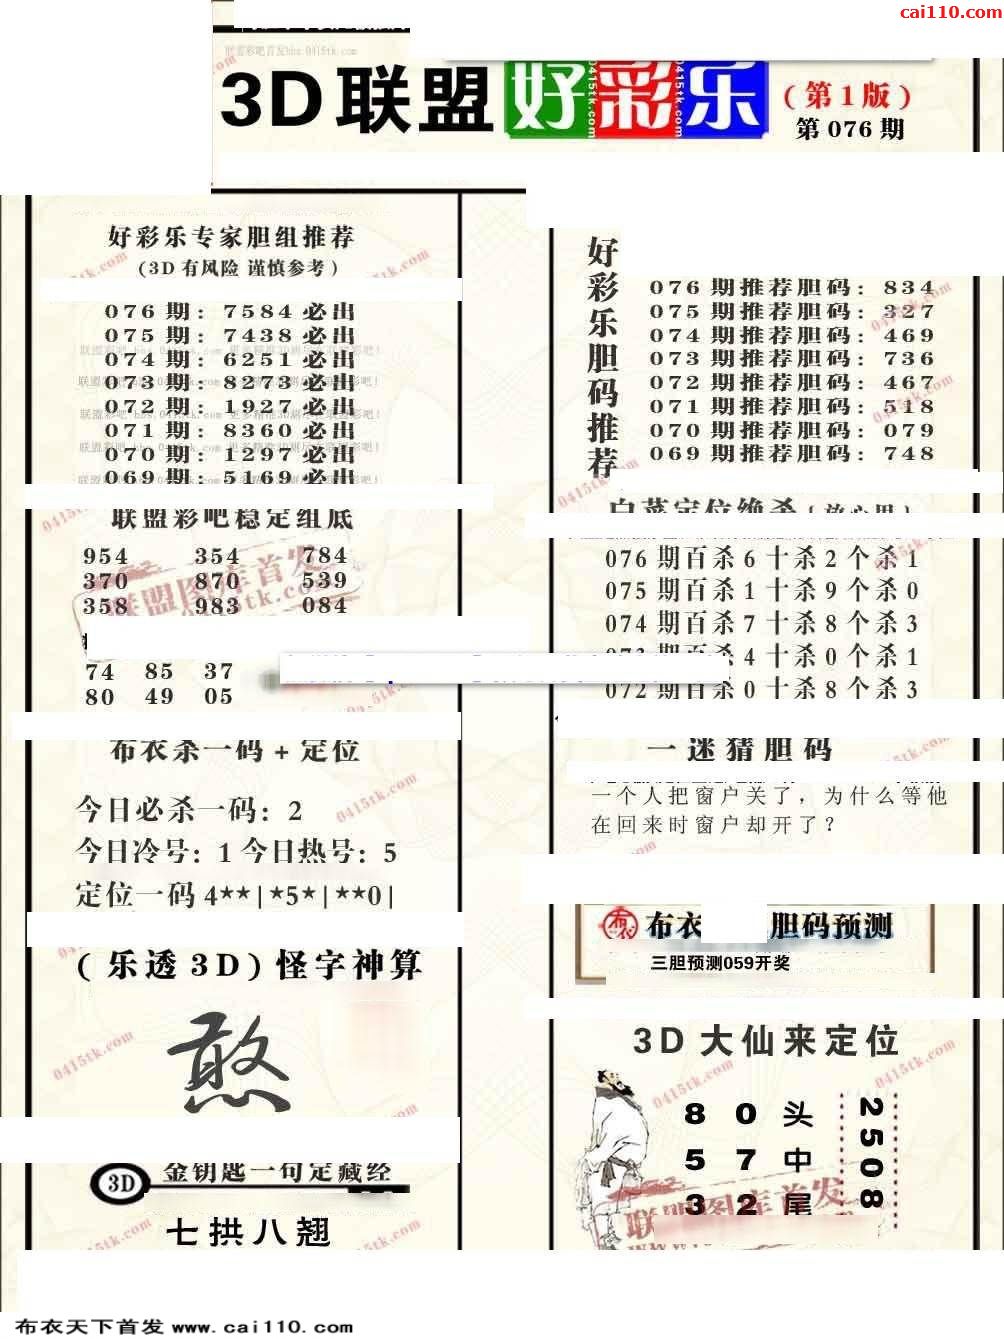 cai110.com
3D联盟好彩乐(第1版)
第076期
好彩乐专家胆组推荐
(3D有风险 谨慎参考)
076期:7584必出
075期:7438必出
074期:6251必出
073期:8273必出
072期:1927必出
071期:8360必出
070期:1297必出
069期:5169必出
联盟彩吧稳定组底
954 354 784
370 870 539
358 983 084
74 85 37
80 49 05
布衣杀一码+定位
今日必杀一码:2
今日冷号:1今日热号:5
定位一码4**|*5*|**0|
(乐透3D)怪字神算
憨
3D 金钥匙一句定藏经
七拱八翘
好彩乐胆码推荐
076期推荐胆码:834
075期推荐胆码:327
074期推荐胆码:469
073期推荐胆码:736
072期推荐胆码:467
071期推荐胆码:518
070期推荐胆码:079
069期推荐胆码:748
白菜定位绝杀
076期百杀6十杀2个杀1
075期百杀1十杀9个杀0
074期百杀7十杀8个杀3
杀4十杀0个杀1
072期百杀0十杀8个杀3
一迷猜胆码
一个人把窗户关了，为什么等他
在回来时窗户却开了？
布衣 胆码预测
三胆预测059开奖
3D大仙来定位
8 0 头
5 7 中
3 2 尾
2508
联盟图库首发
0415tk.com
布衣天下首发 www.cai110.com